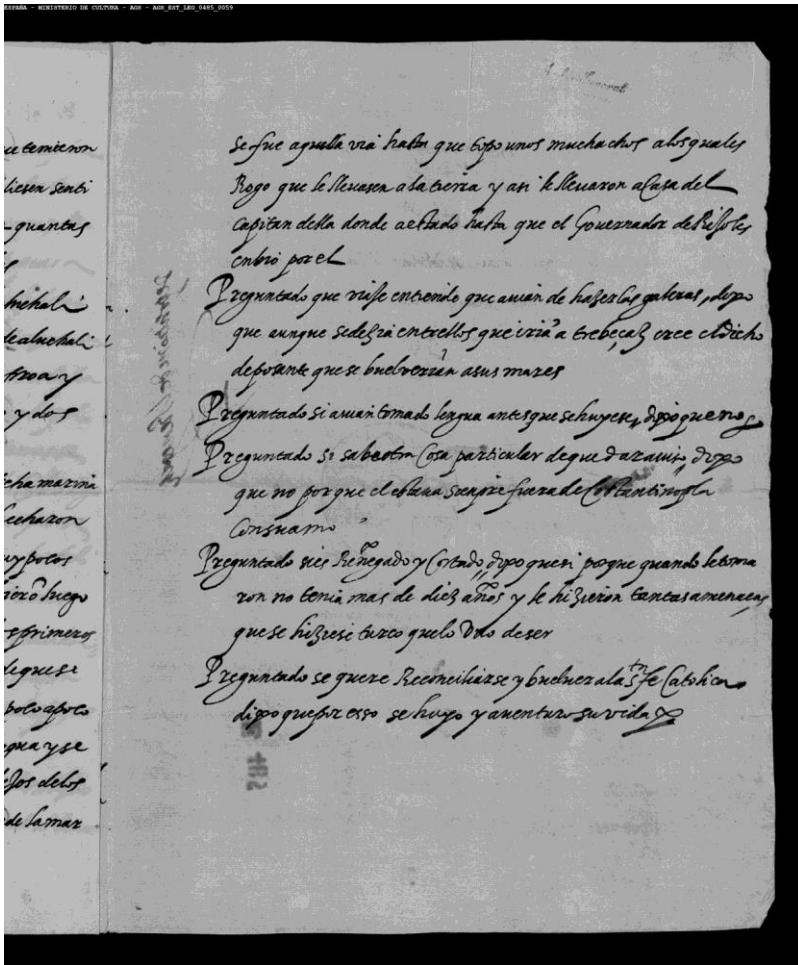 ESPAÑA - MINISTERIO DE CULTURA - AGS - AGS_EST_LEG_0485_0059
ue temieron
liesen senti
quantas
luchali
de aluchali
proa y
y dos
echa marina
lecharon
uy pocos
ierõ luego
s primeros
de que se
poco a poco
gua y se
lejos delos
de la mar
se fue aquella via hasta que topo unos muchachos alos quales
Rogo que le llevasen a la tierra y asi le llevaron a Casa del
capitan della donde a estado hasta que el Governador de Rijoles
enbio por el
Preguntado que viaje entiende que avian de hazer las galeras, dixo
que aunque se dezia entrellos que iriã a trebeçal cree el dicho
deposante que se bolverian a sus mares
Preguntado si avian tomado lengua antes que se huyese, dixo que no
Preguntado si sabe otra Cosa particular de que dar aviso, dixo
que no porque el estava sienpre fuera de Costantinopla
Con su amo
Preguntado si es Renegado y Cortado, dixo que si porque quando le toma
ron no tenia mas de diez años y le hizieron tantas amenaças
que se hiziese turco que lo Vuo de ser
Preguntado se quere Reconciliarse y buelver a la stª fe Catolica
dixo que por esso se huyo y aventuro su vida
485